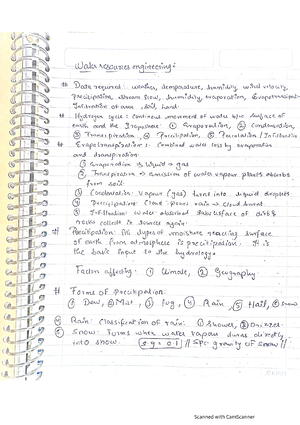 Water resources engineering:-
# Data required: weather, temperature, humidity, wind velocity,
precipitation, stream flow, humidity, evaporation, Evapotranspiration
Infiltration of area, soil, land.
# Hydrogen cycle: continuous movement of water b/w surface of
earth and the ① Evaporation, ② Condensation,
③ Transpiration, ④ Precipitation, ⑤ Percolation / Infiltration
# Evapotranspiration: Combined water loss by evaporation
and transpiration.
① Evaporation is liquid → gas
② Transpiration → emission of water vapour plants absorbs
from soil.
③ Condensation: Vapour (gas) turn into liquid droplets
④ Precipitation: Cloud pours rain → cloud burst
⑤ Infiltration: Water absorbed subsurface of
rocks collect in sources again.
# Precipitation: All types of moisture reaching surface
of earth from atmosphere is precipitation. It is
the basic input to the hydrology.
Factors affecting: ① Climate, ② Geography.
# Forms of Precipitation:
① Dew, ② Mist, ③ Fog, ④ Rain, ⑤ Hail, ⑥ Snow
④ Rain: Classification of rain: ① Shower, ② Drizzle.
⑥ Snow: Forms when water vapour turns directly
into snow. s.g = 0.1 // Spc gravity of snow //
Scanned with CamScanner